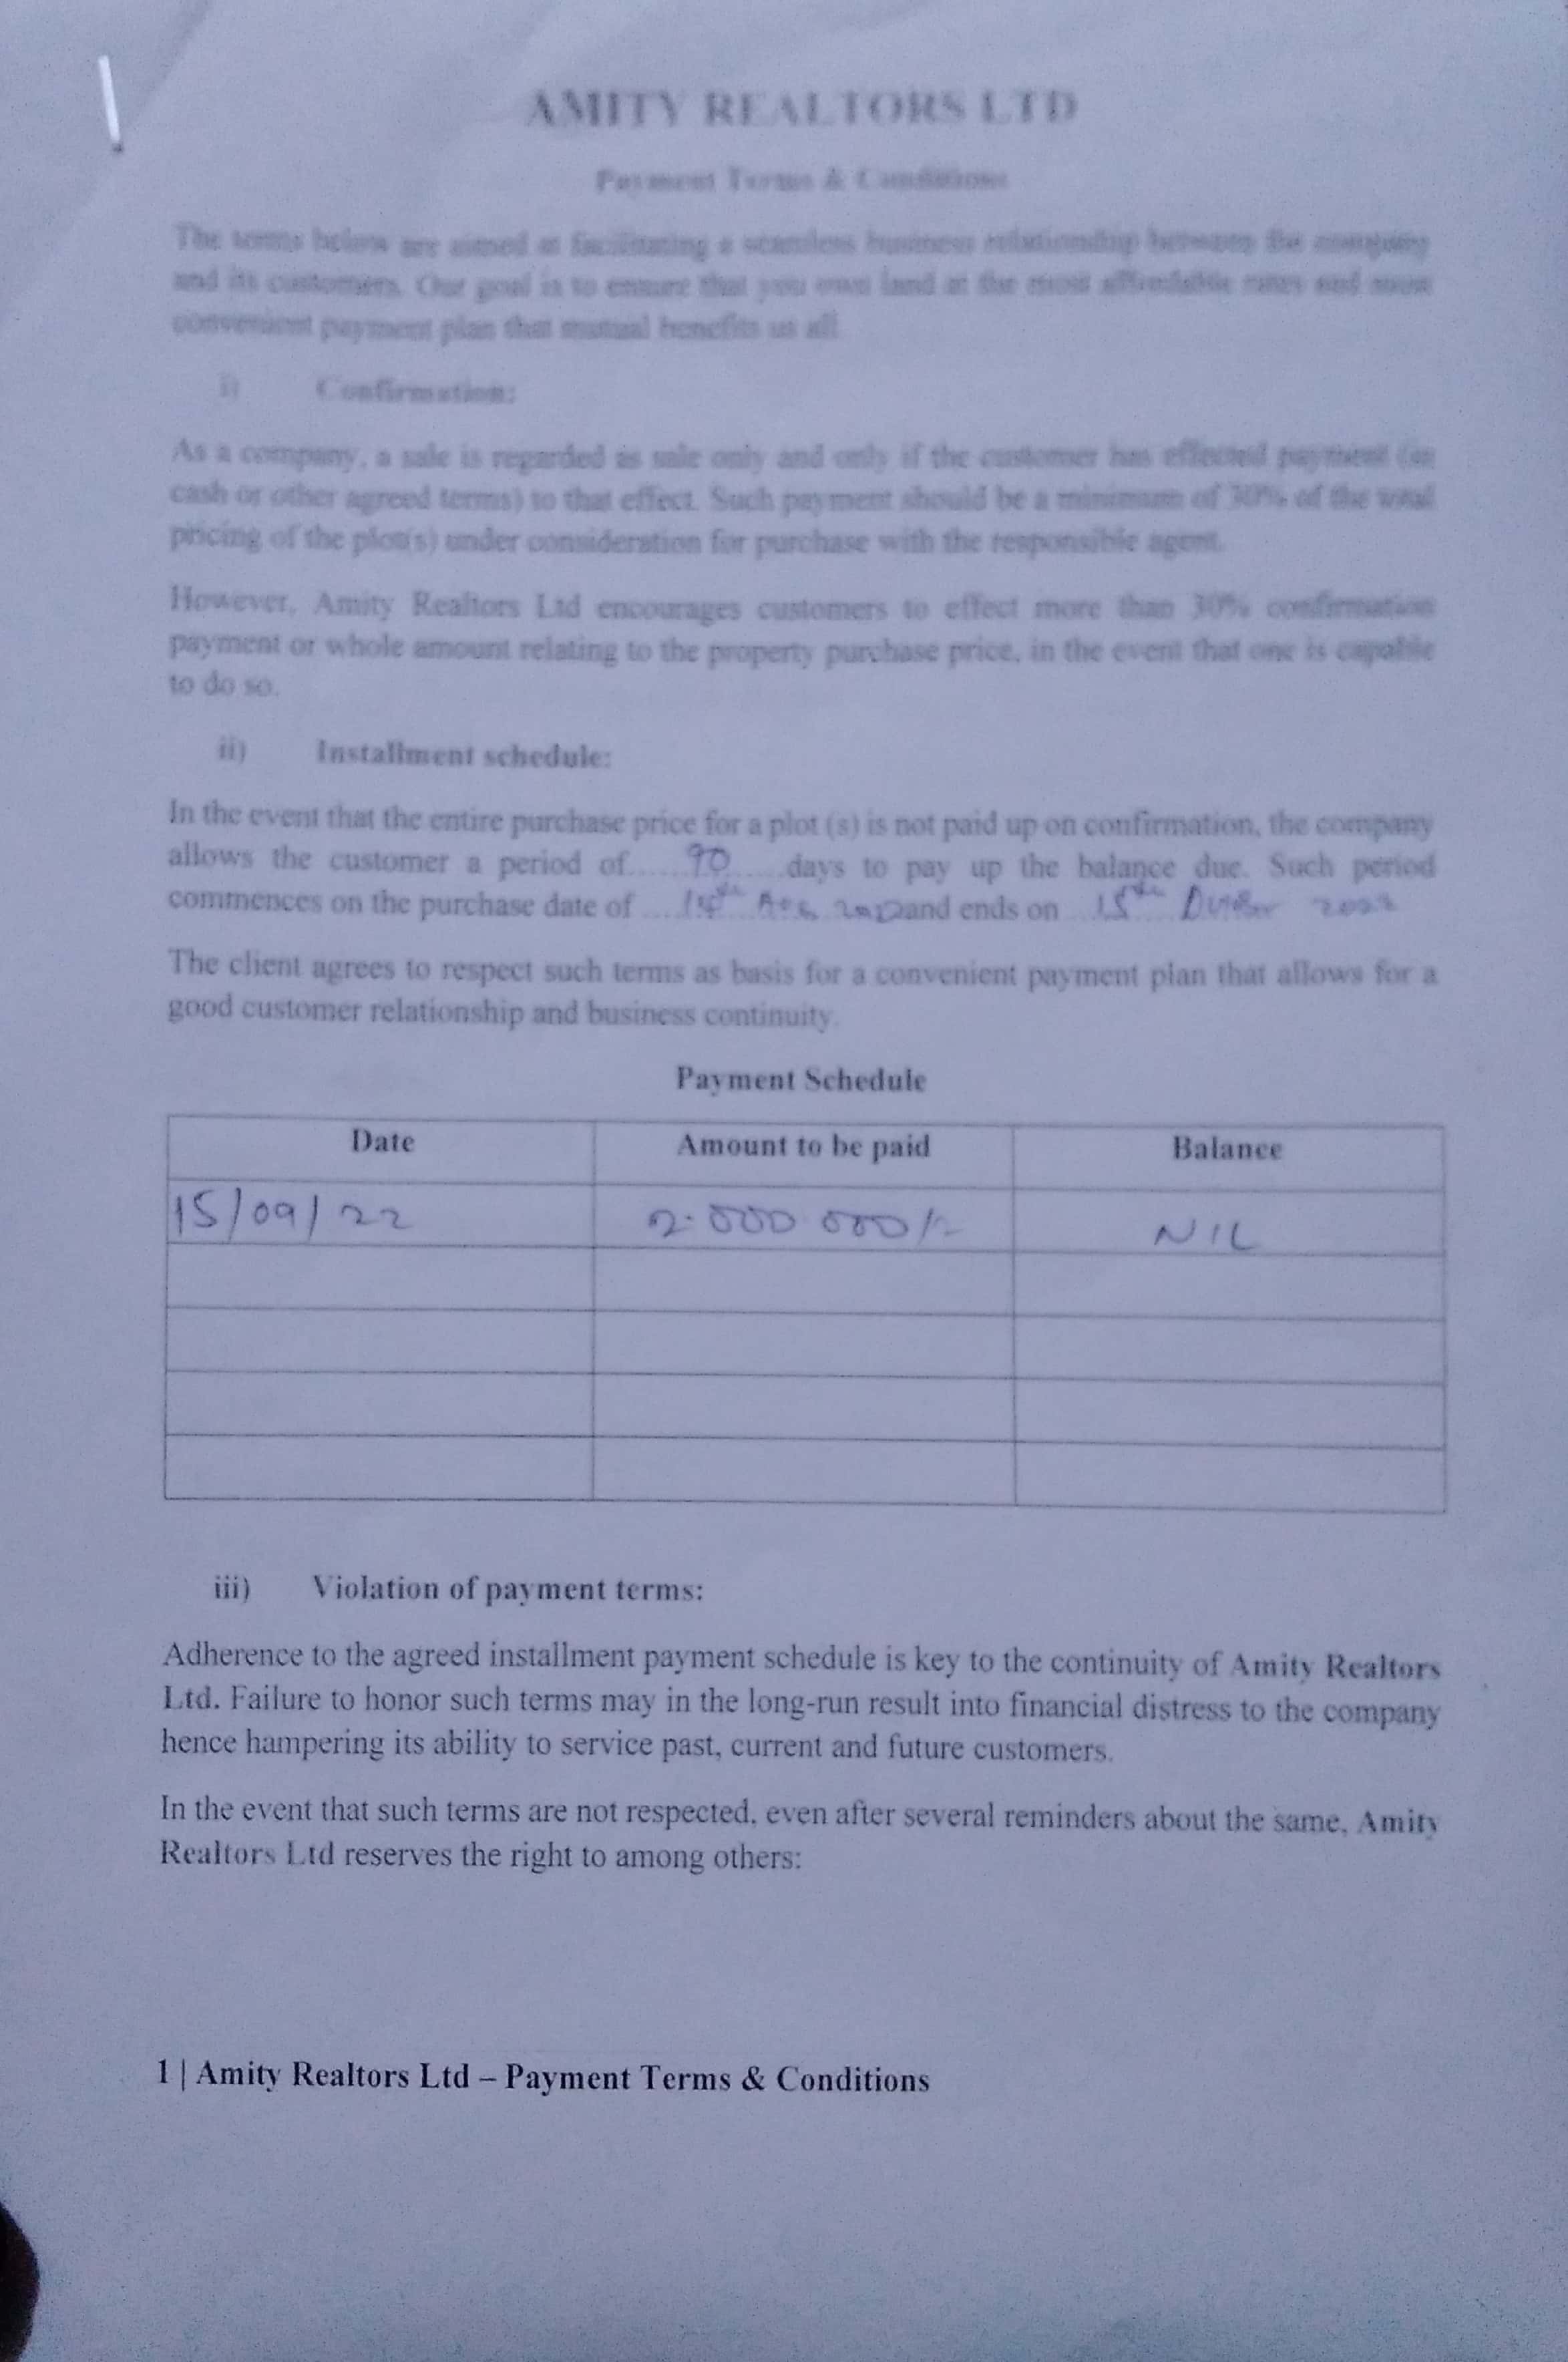 AMITY REALTORS LTD
Payment Terms & Conditions
The terms below are aimed at facilitating a seamless business relationship between the company
and its customers. Our goal is to ensure that you own land at the most affordable rates and
convenient payment plan that mutual benefits us all
i) Confirmation:
As a company, a sale is regarded as sale only and only if the customer has effected payment (in
cash or other agreed terms) to that effect. Such payment should be a minimum of 30% of the total
pricing of the plot(s) under consideration for purchase with the responsible agent.
However, Amity Realtors Ltd encourages customers to effect more than 30% confirmation
payment or whole amount relating to the property purchase price, in the event that one is capable
to do so.
ii) Installment schedule:
In the event that the entire purchase price for a plot (s) is not paid up on confirmation, the company
allows the customer a period of......90......days to pay up the balance due. Such period
commences on the purchase date of and ends on 15th
The client agrees to respect such terms as basis for a convenient payment plan that allows for a
good customer relationship and business continuity.
Payment Schedule
Date Amount to be paid Balance
15/09/22 2.000 000/= NIL
iii) Violation of payment terms:
Adherence to the agreed installment payment schedule is key to the continuity of Amity Realtors
Ltd. Failure to honor such terms may in the long-run result into financial distress to the company
hence hampering its ability to service past, current and future customers.
In the event that such terms are not respected, even after several reminders about the same, Amity
Realtors Ltd reserves the right to among others:
1 | Amity Realtors Ltd – Payment Terms & Conditions